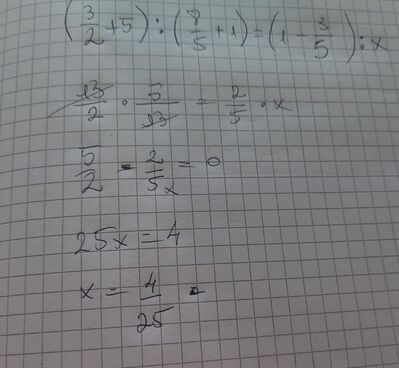 (3/2 + 5) : (8/5 + 1) = (1 - 3/5) : x
13/2 · 5/13 = 2/5 · x
5/2 - 2/5x = 0
25x = 4
x = 4/25